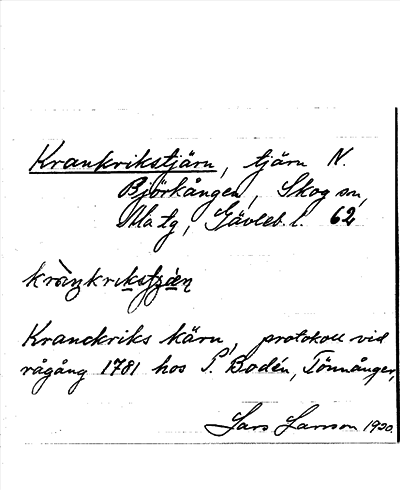 Krankrikstjärn, tjärn N.
Björkången, Skog sn,
Ala tg, Gävleb. l. 62
kràŋkrikstʃæ̀ɳ
Kranckriks kärn, protokoll vid
rågång 1781 hos P. Bodén, Tönnånger,
Lars Larsson 1920.